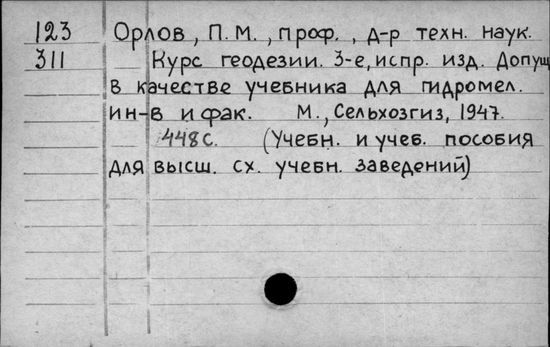 123 Орлов, П. М., проф., д-р техн. наук.
311 Курс геодезии. 3-е, испр. изд. Допущ
в качестве учебника для гидромел.
ин-в и фак. М., Сельхозгиз, 1947.
448 с. (Учебн. и учеб. пособия
для высш. сх. учебн. заведений)